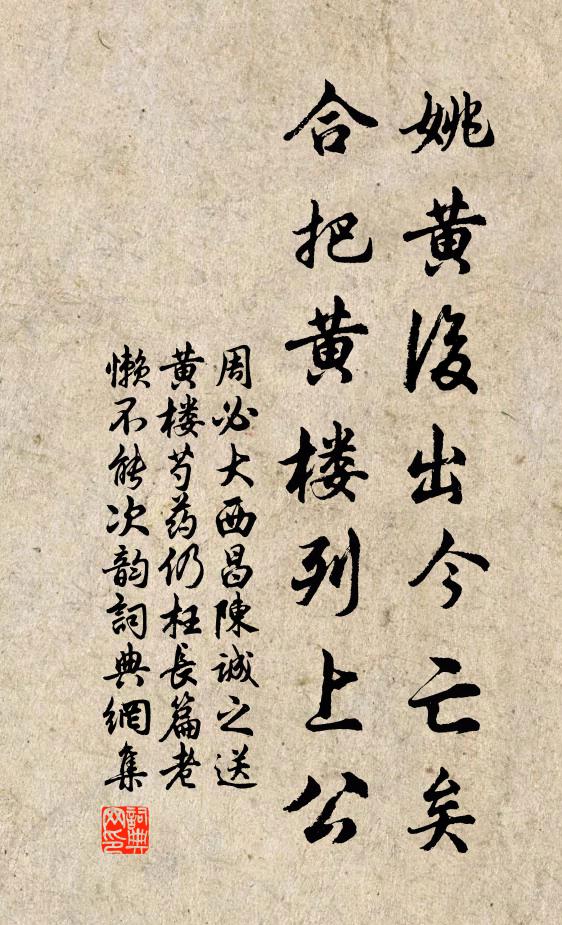 姚黄後出今亡矣
合把黄楼列上公
周必大西昌陳誠之送
黄楼芍药仍枉長篇老
懒不能次韵詞典網集
詞典网印